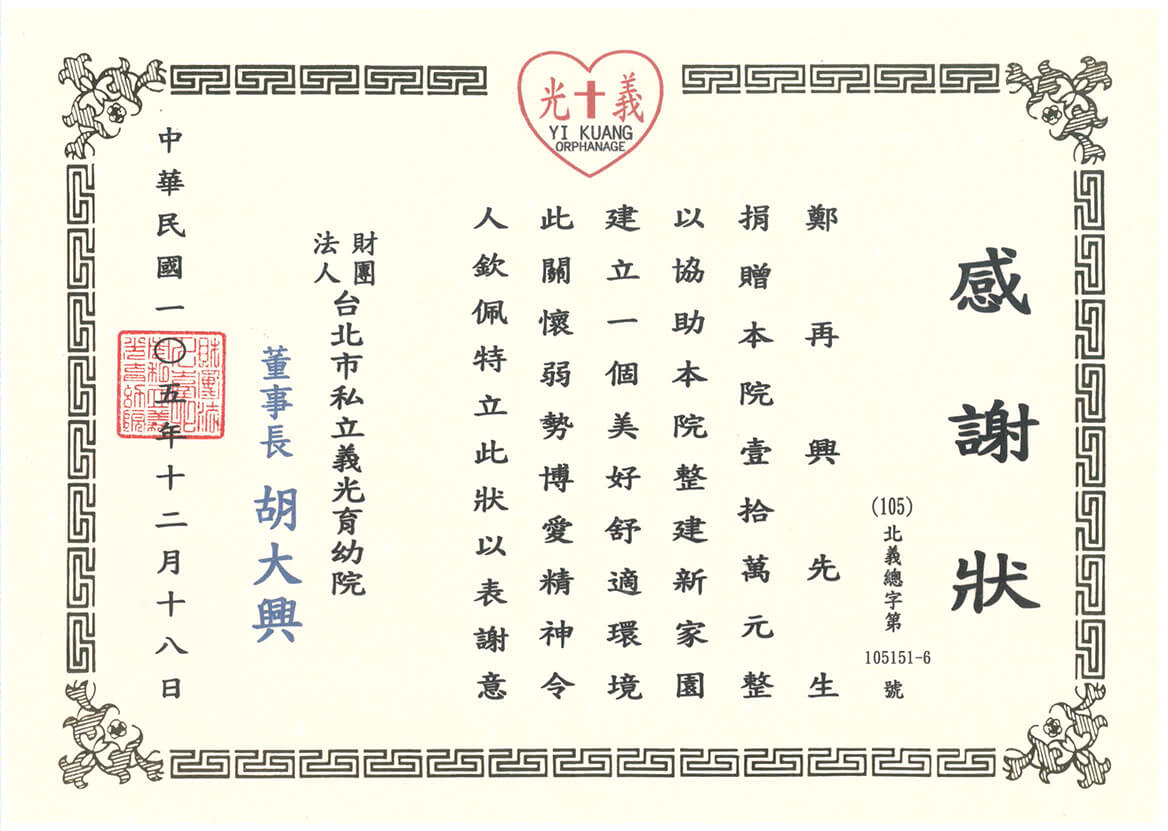 光十義
YI KUANG
ORPHANAGE
感謝狀
(105)北義總字第105151-6號
鄭再興先生
捐贈本院壹拾萬元整
以協助本院整建新家園
建立一個美好舒適環境
此關懷弱勢博愛精神令
人欽佩特立此狀以表謝意
財團法人台北市私立義光育幼院
董事長 胡大興
中華民國一〇五年十二月十八日